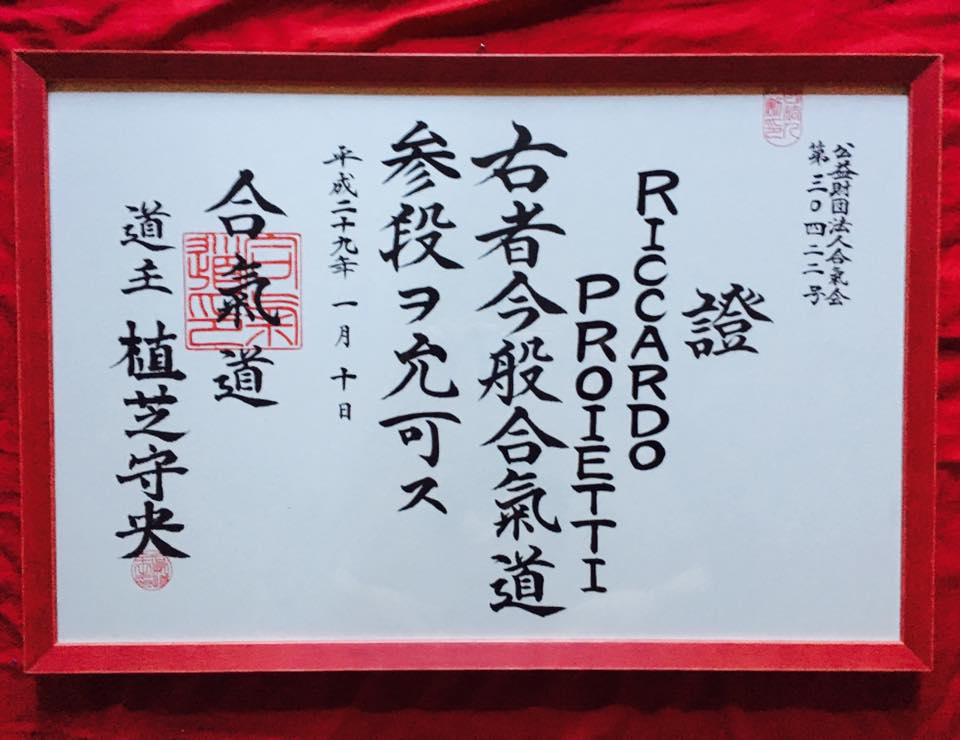 公益財団法人合氣会
第三〇四二二号
證
RICCARDO
PROIETTI
右者今般合氣道
参段ヲ允可ス
平成二十九年一月十日
合氣道
道主 植芝守央